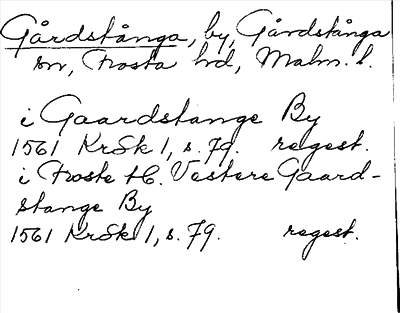 Gårdstånga, by, Gårdstånga
sn, Frosta hd, Malm. l.
i Gaardstange By
1561 KrSk 1, s. 79. regest.
i Froste H. Vestere Gaard-
stange By
1561 KrSk 1, s. 79. regest.